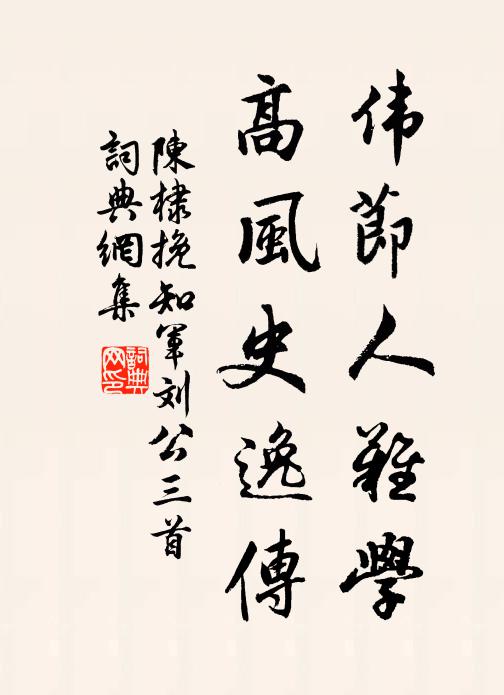 伟節人難學
高風史逸傳
陳棣挽知軍刘公三首
詞典網集
詞典网印